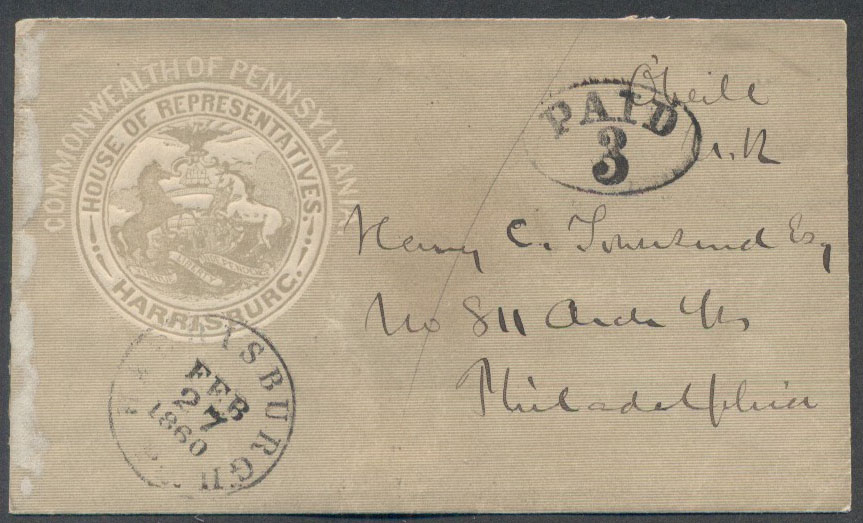 COMMONWEALTH OF PENNSYLVANIA.
HOUSE OF REPRESENTATIVES.
HARRISBURG.
LIBERTY
PAID
3
O'Neill
Henry C. Townsend Esq
No 811 Arch St
Philadelphia
HARRISBURGH
FEB
27
1860